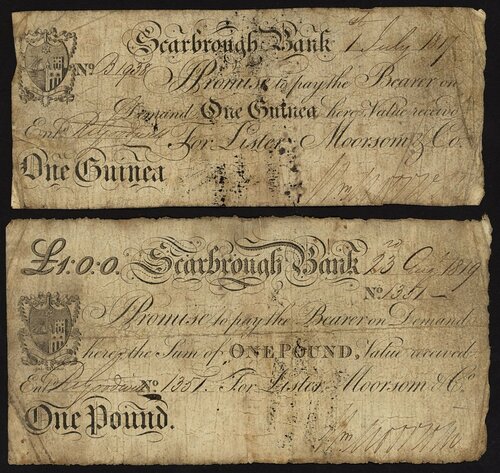 Scarbrough Bank 1st July 1817
No. B1938 I Promise to pay the Bearer on
Demand One Guinea here Value receivd
Entd. For Lister, Moorsom & Co.
One Guinea
£1:0:0. Scarbrough Bank 23rd Augt 1819
No. 1351
I Promise to pay the Bearer on Demand
here the Sum of ONE POUND, Value received
Entd. No. 1351. For Lister, Moorsom & Co.
One Pound.